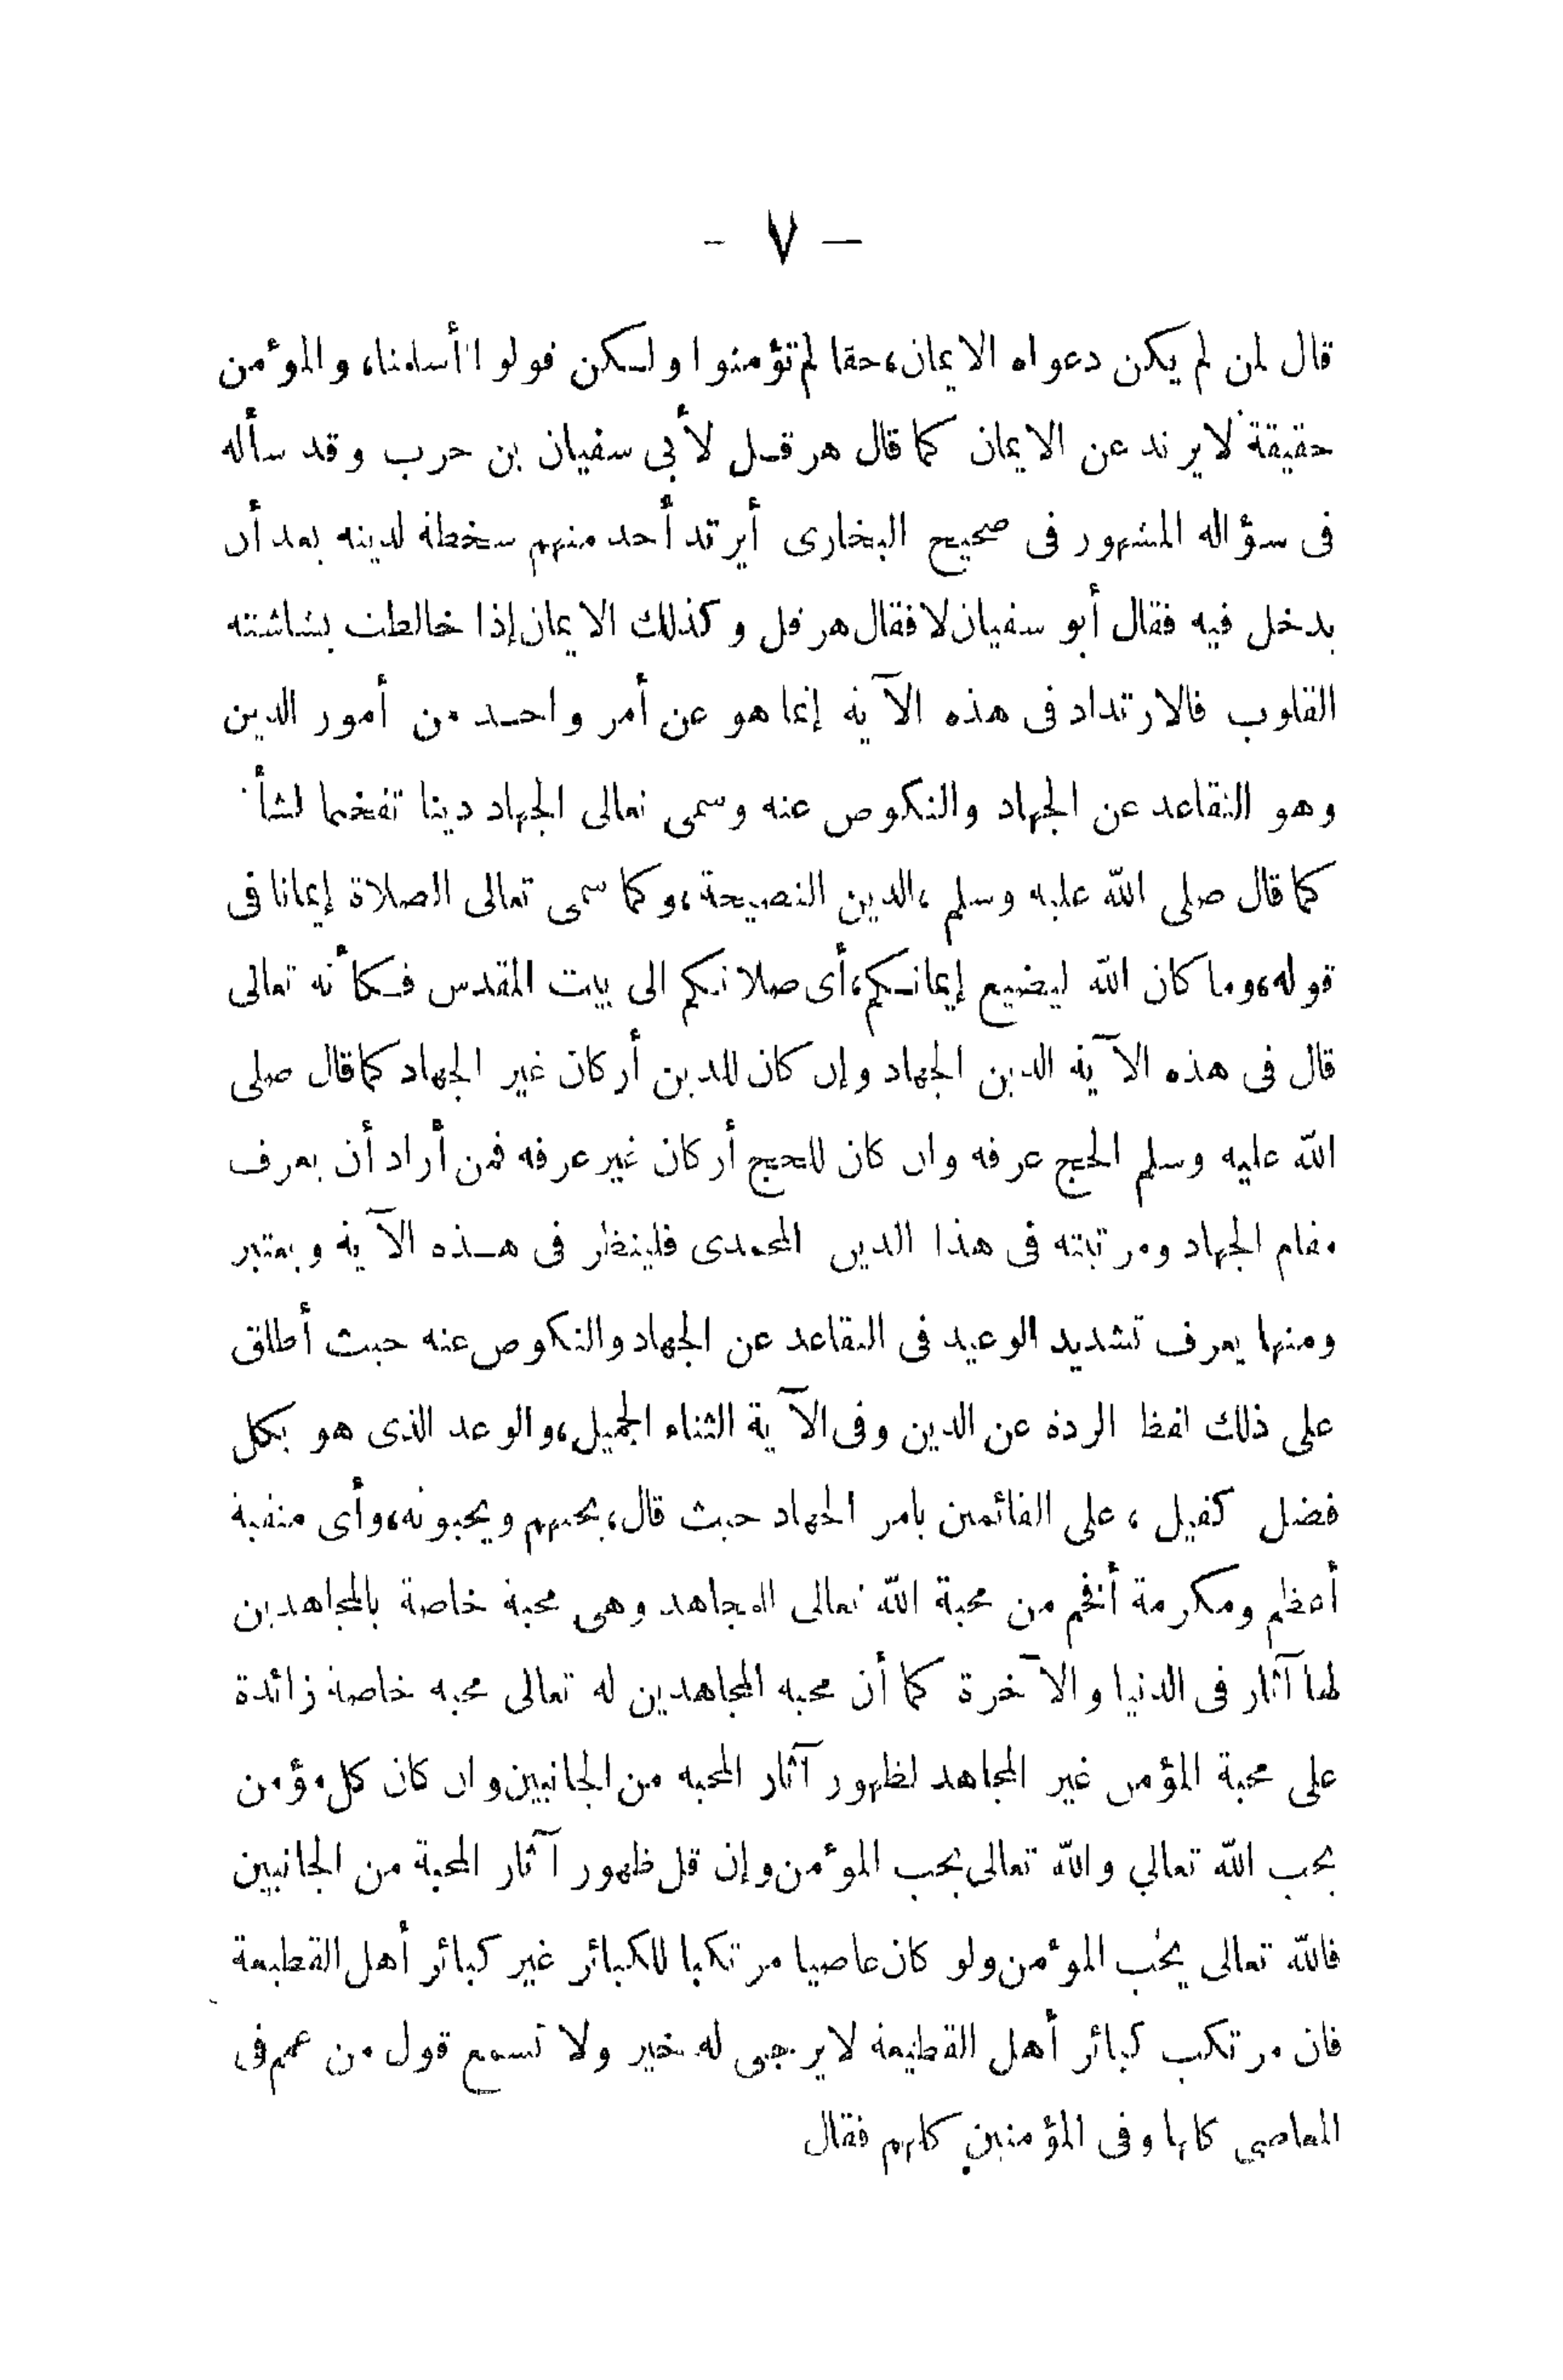 — ٧ -
قال لمن لم يكن دعواه الايمان،حقا لم تؤمنوا ولكن قولوا أسلمنا، والمؤمن
حقيقة لايرتد عن الايمان كما قال هرقل لأبى سفيان بن حرب وقد سأله
فى سؤاله المشهور فى صحيح البخارى أيرتد أحد منهم سخطة لدينه بعد أن
يدخل فيه فقال أبو سفيان لا فقال هرقل وكذلك الايمان إذا خالطت بشاشته
القلوب فالارتداد فى هذه الآية إنما هو عن أمر واحد من أمور الدين
وهو التقاعد عن الجهاد والنكوص عنه وسمى تعالى الجهاد دينا تفخيما لشأ
كما قال صلى الله عليه وسلم ،الدين النصيحة،وكما سمى تعالى الصلاة إيمانا فى
قوله،وما كان الله ليضيع إيمانكم،أى صلاتكم الى بيت المقدس فكأنه تعالى
قال فى هذه الآية الدين الجهاد وإن كان للدين أركان غير الجهاد كما قال صلى
الله عليه وسلم الحج عرفه وان كان للحج أركان غير عرفه فمن أراد أن يعرف
مقام الجهاد ومرتبته فى هذا الدين المحمدى فلينظر فى هذه الآية ويعتبر
ومنها يعرف تشديد الوعيد فى التقاعد عن الجهاد والنكوص عنه حيث أطلق
على ذلك لفظ الردة عن الدين وفى الآية الثناء الجميل،والوعد الذى هو بكل
فضل كفيل ، على القائمين بامر الجهاد حيث قال،يحبهم ويحبونه،وأى منقبة
أعظم ومكرمة أفخم من محبة الله تعالى للمجاهد وهى محبة خاصة بالمجاهدين
لها آثار فى الدنيا والآخرة كما أن محبه المجاهدين له تعالى محبه خاصة زائدة
على محبة المؤمن غير المجاهد لظهور آثار المحبه من الجانبين وان كان كل مؤمن
يحب الله تعالي والله تعالى يحب المؤمن وإن قل ظهور آثار المحبة من الجانبين
فالله تعالى يحب المؤمن ولو كان عاصيا مرتكبا للكبائر غير كبائر أهل القطيعة
فان مرتكب كبائر أهل القطيعة لايرجى له خير ولا تسمع قول من عمم فى
المعاصي كلها وفى المؤمنين كلهم فقال